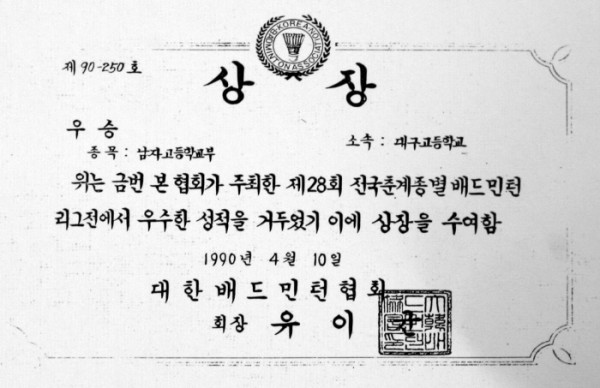 KOREA BADMINTON ASSOCIATION
제 90-250 호
상 장
우 승
소속 : 대구고등학교
종목 : 남자고등학교부
위는 금번 본 협회가 주최한 제28회 전국춘계종별 배드민턴
리그전에서 우수한 성적을 거두었기 이에 상장을 수여함
1990 년 4 월 10 일
대 한 배 드 민 턴 협 회
회장 유 이